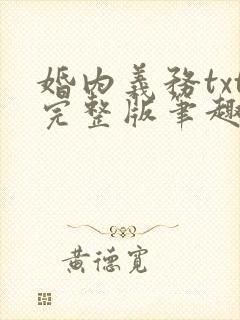 婚内義務txt
完整版筆趣
黄德寬